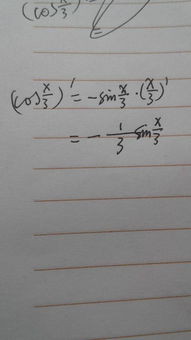 (cos x/3)
(cos x/3)' = -sin x/3 · (x/3)'
= - 1/3 sin x/3